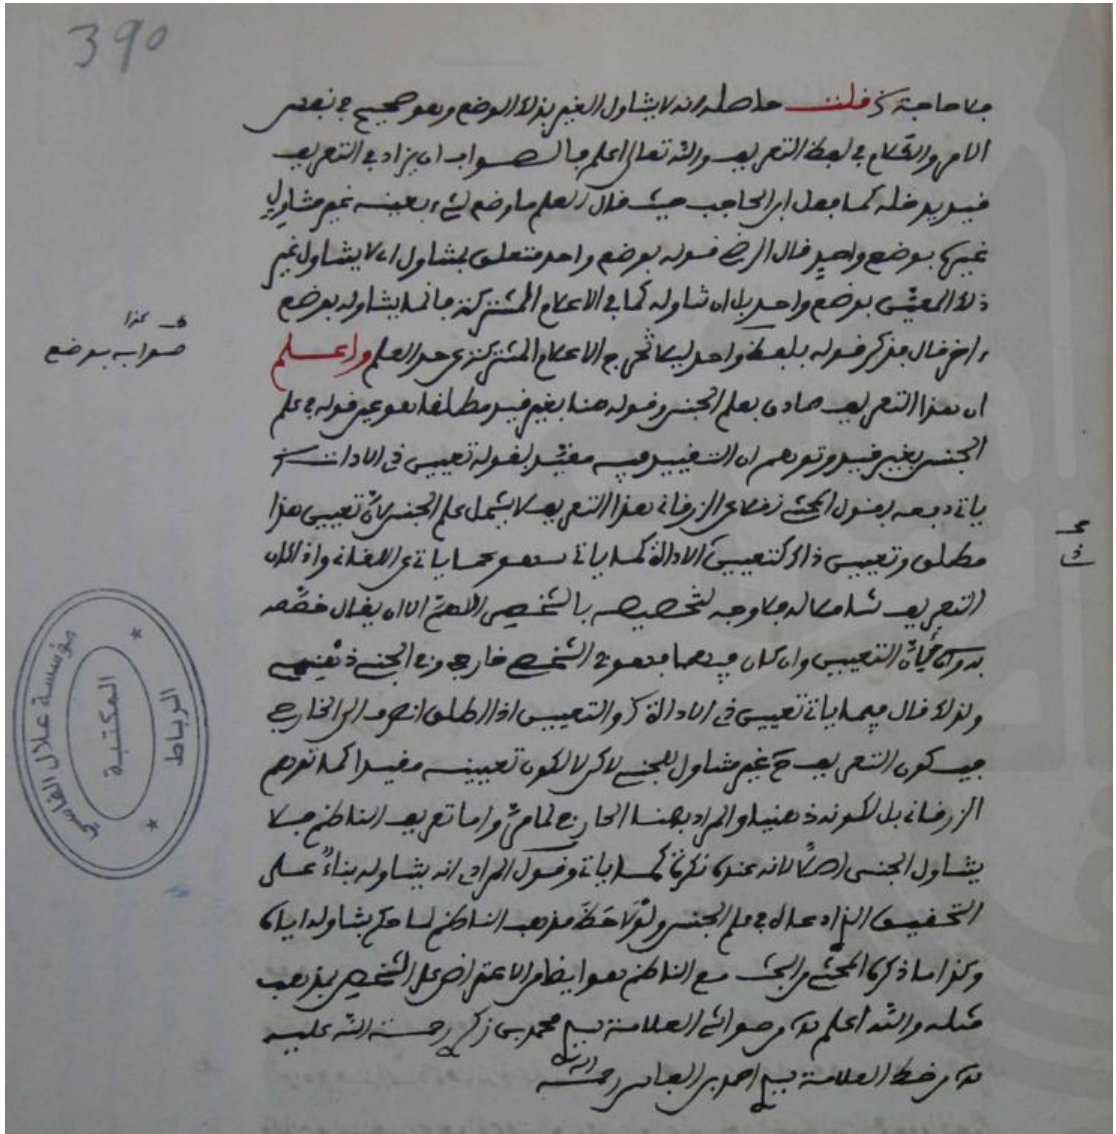 390
فلا حاجة كـ قلت حاصله انه لا يتناول الغير بذلك الوضع وهو صحيح في نفس
الامر والكلام في لفظ التعريف والله تعالى اعلم فالصواب ان يزاد في التعريف
قيد يدخله كما فعل ابن الحاجب حيث قال العلم ما وضع لشيء بعينه غير متناول
غيره بوضع واحد قال الرضي قوله بوضع واحد متعلق بمتناول اي لا يتناول غير
ذلك المعين بوضع واحد بل ان تناوله كما في الاعلام المشتركة فانما يتناوله بوضع
ءاخر قال فذكر قوله بلفظ واحد ليلا تخرج الاعلام المشتركة عن حد العلم واعلم
ان هذا التعريف صادق بعلم الجنس وقوله هنا بغير قيد مطلقا هو عين قوله في علم
الجنس بغير قيد وتوهم ان التقييد فيه مقيد لقوله تعيين ذي الاداة
ياتي دفعه فقول المحشي نقلا عن الزرقاني هذا التعريف لا يشمل علم الجنس لان تعيين هذا
مطلق وتعيين ذاك كتعيين الاداة كما ياتي سهو عما ياتي عن اللقاني واذا كان
التعريف شاملا له فلا وجه لتخصيصه بالشخصي اللهم الا ان يقال خصصه
به لان التعيين وان كان فيهما فهو في الشخصي خارجي وفي الجنسي ذهني
ولذلك قال فيما ياتي تعيين ذي الاداة والتعيين اذا اطلق انصرف الى الخارجي
فيكون التعريف ح غير متناول للجنسي لاكن لا لكون تعيينه مقيدا كما توهم
الزرقاني بل لكونه ذهنيا والمراد هنا الخارجي لما مر واما تعريف الناظم فلا
يتناول الجنسي اصلا لانه عنده نكرة كما ياتي وقول المرادي انه يتناوله بناء على
التحقيق الزاد عاله في علم الجنس ولو لاحظ مذهب الناظم لما حكم بتناوله اياه
وكذا ما ذكره المحشي من البحث مع الناظم هو ايضا من الاعتراض على الشخص بمذهب
مثله والله اعلم من حواشي العلامة محمد بن زكري رحمة الله عليه
من خط العلامة احمد بن العباس رحمه الله
كذا
صوابه بوضع
مؤسسة علال الفاسي
المكتبة
الرباط